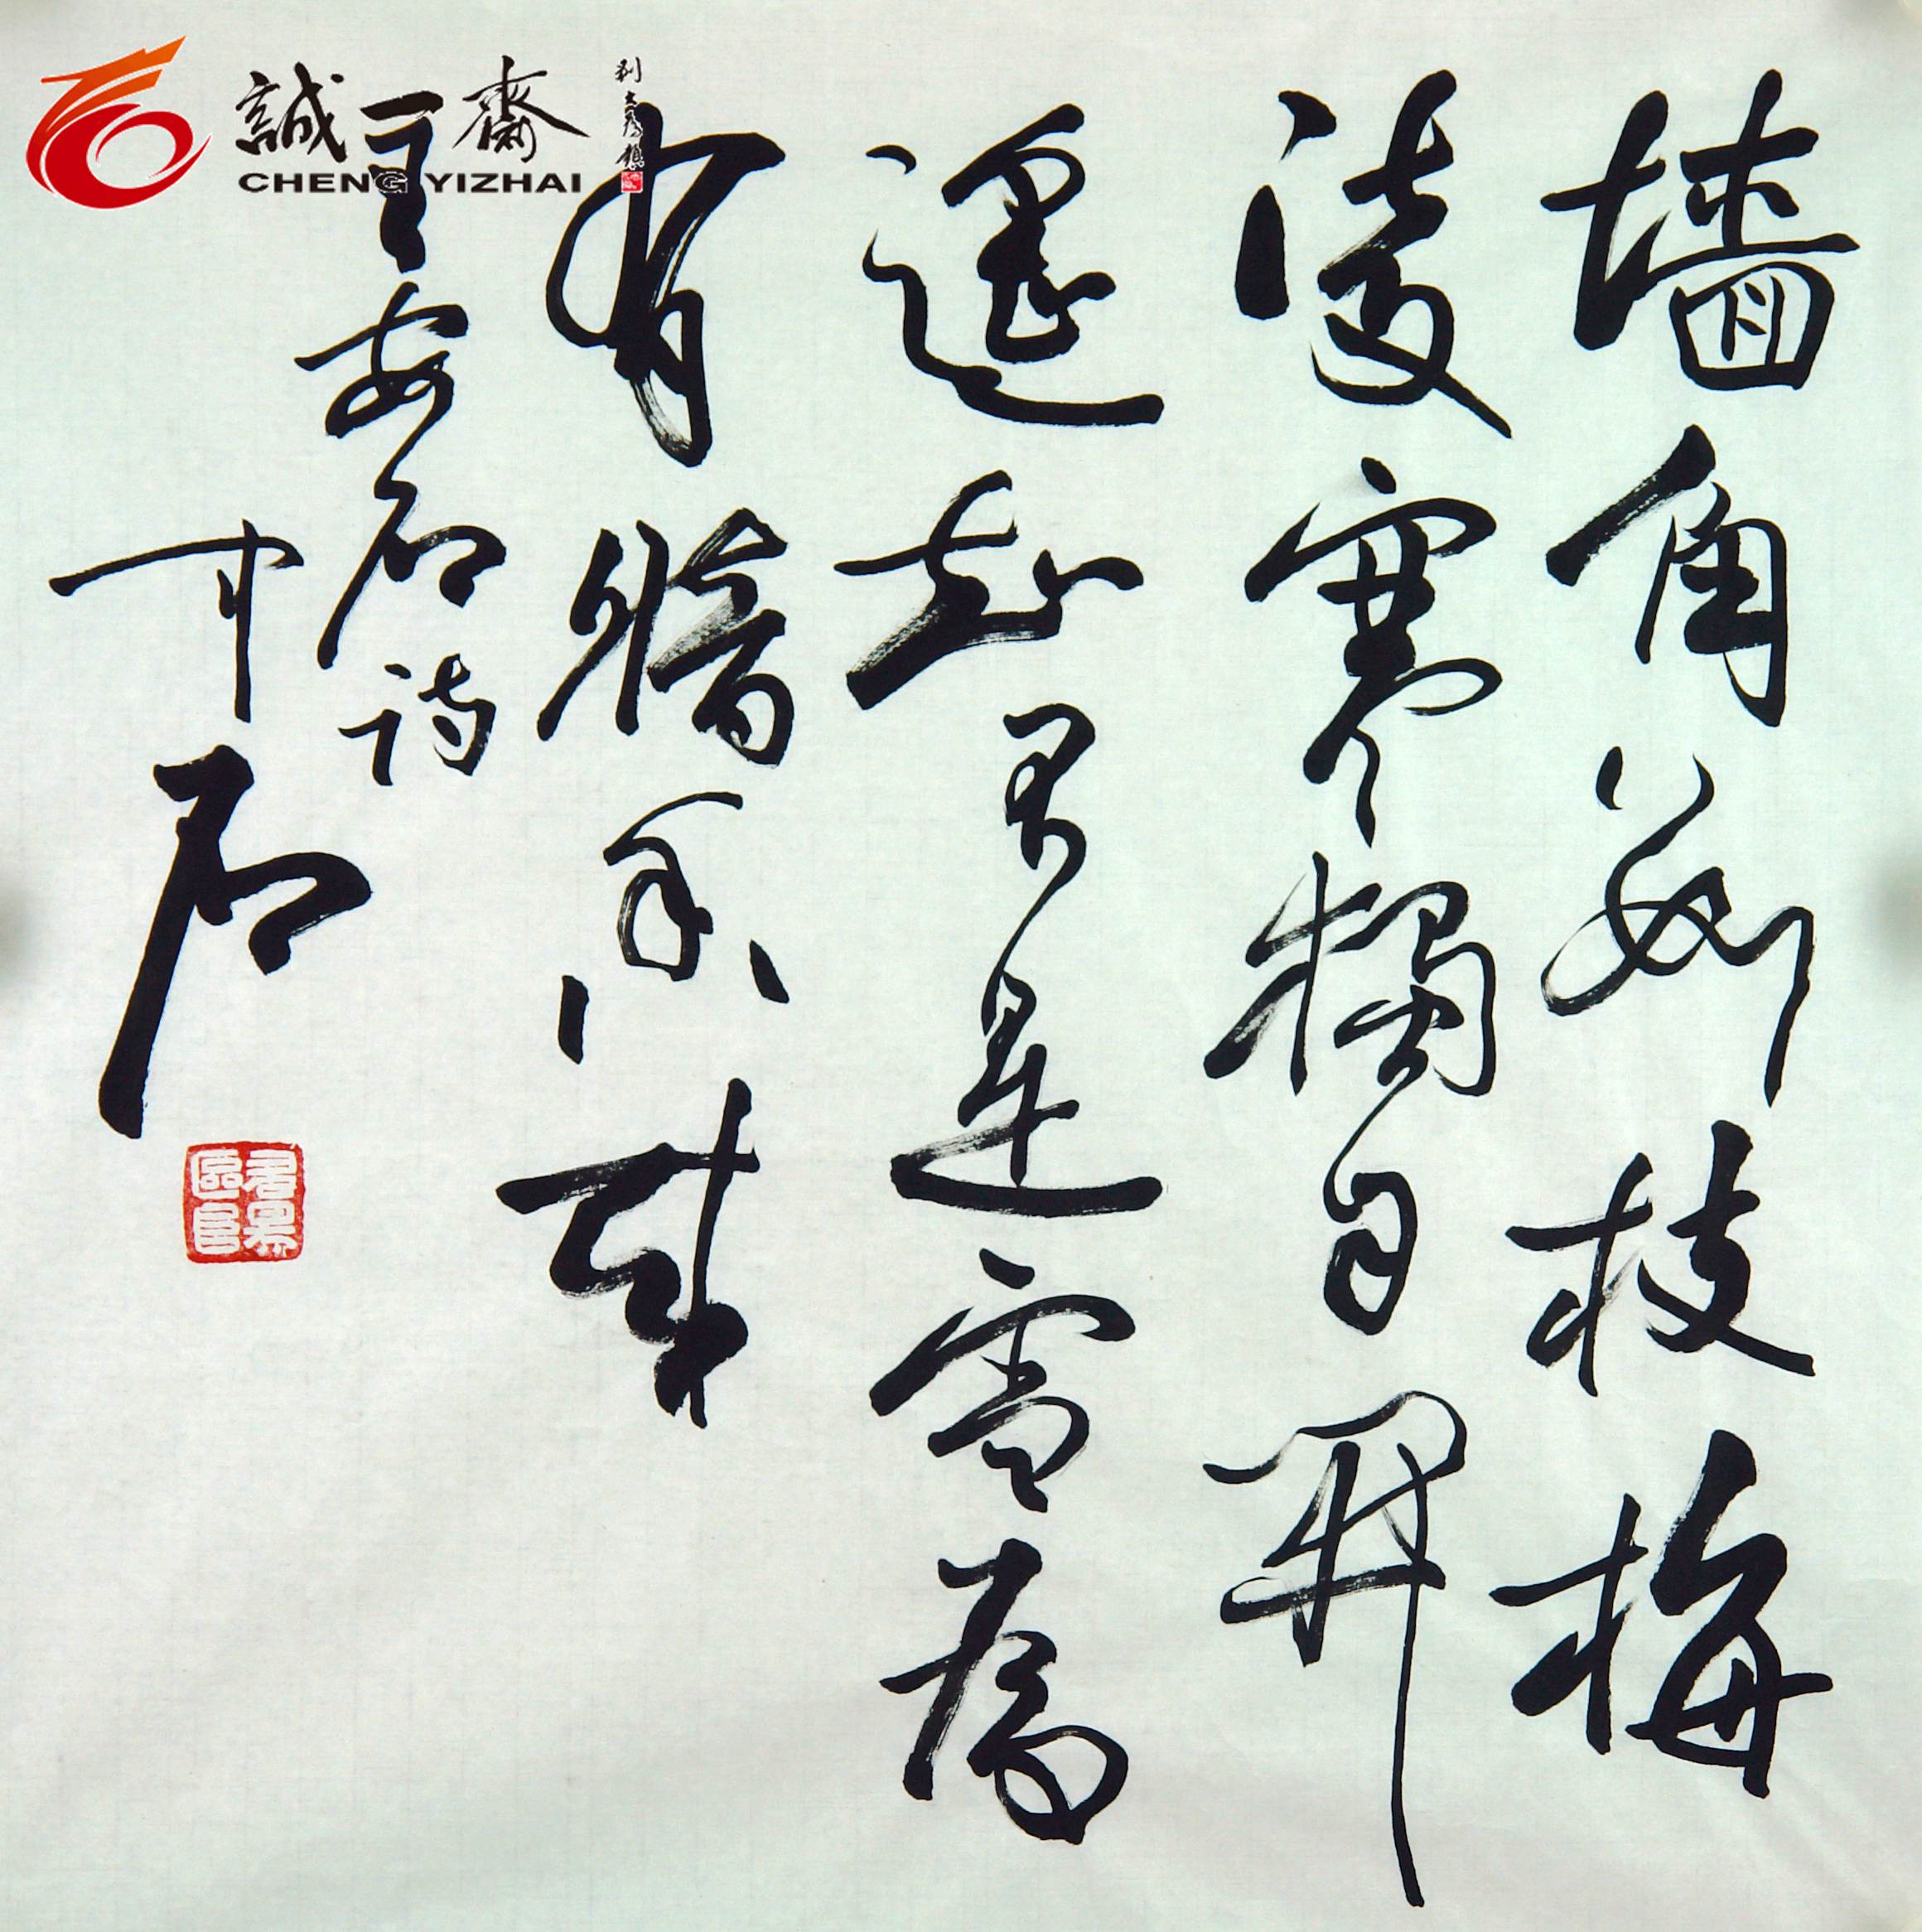 誠一齋
CHENG YIZHAI
墙角數枝梅
凌寒獨自開
遥知不是雪為
有暗香來
王安石诗
中石